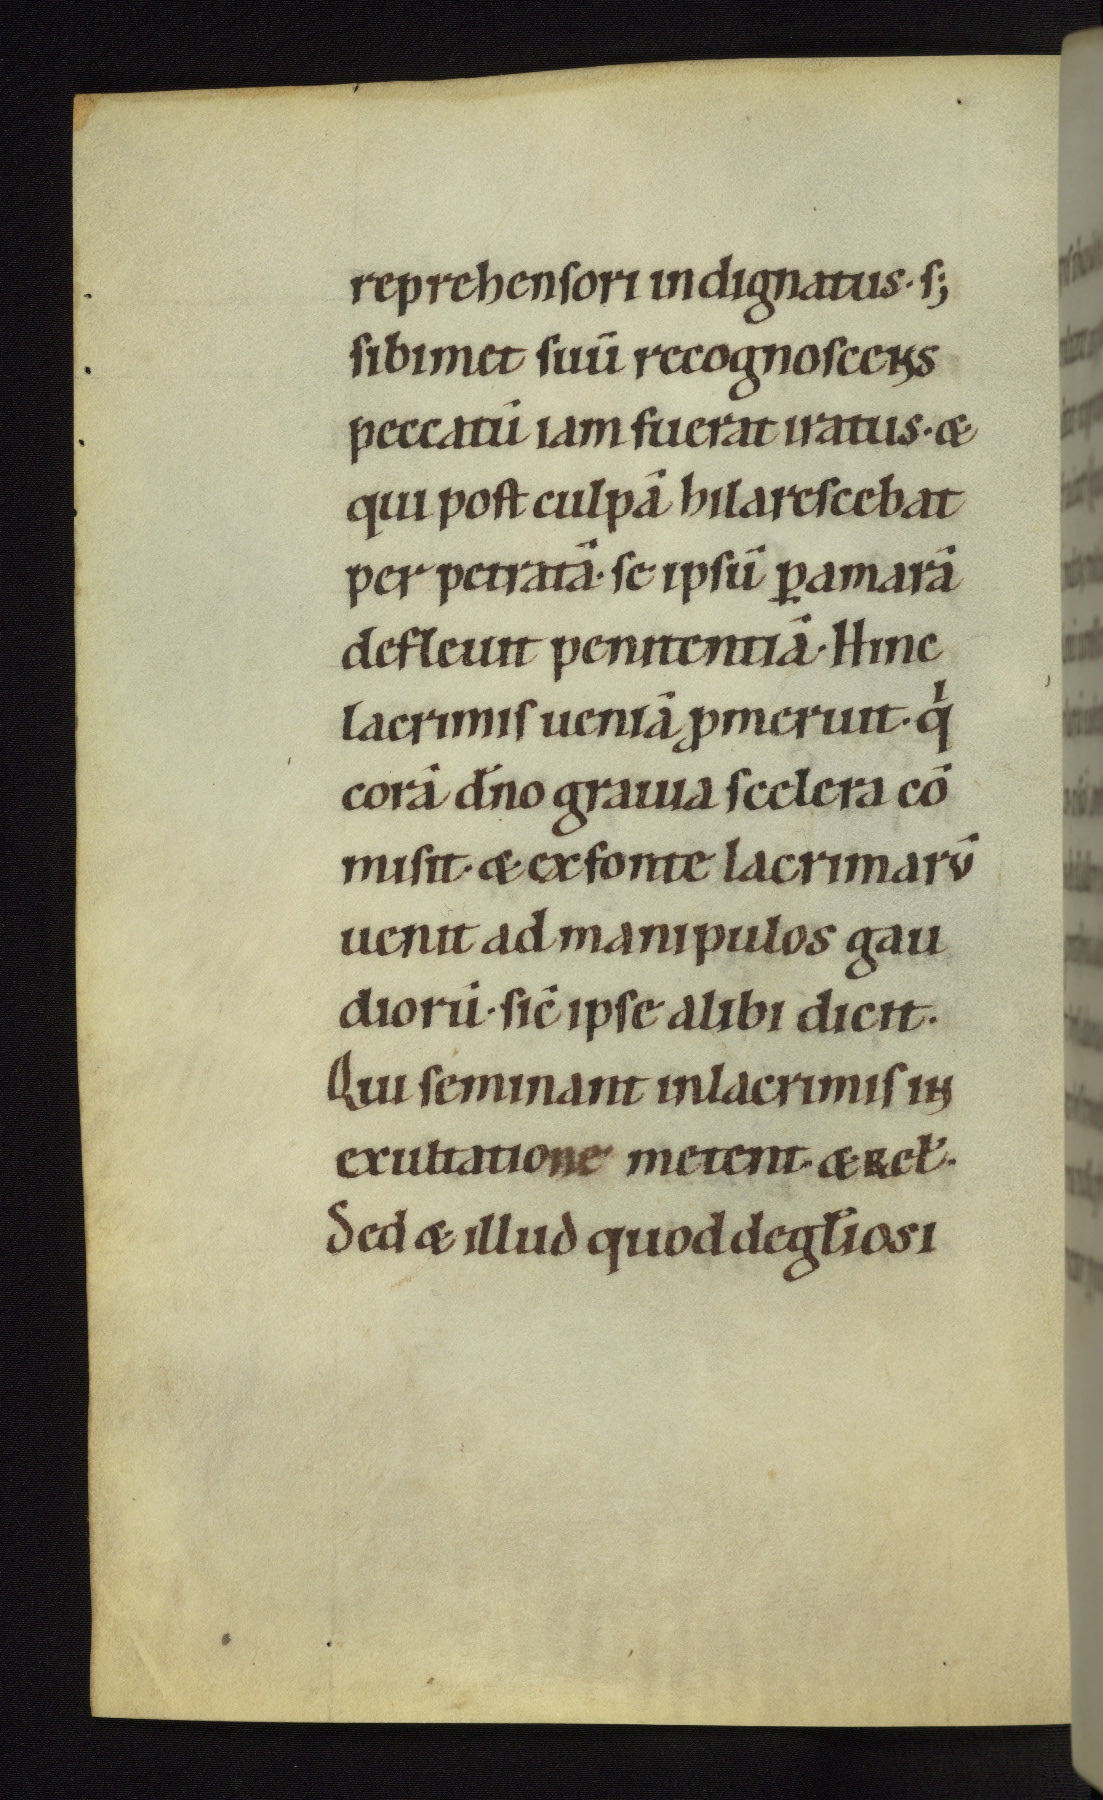 reprehensori indignatus· s;
sibimet suū recognoscens
peccatū iam fuerat iratus· &
qui post culpā hilarescebat
per petratā· se ipsū ꝑamarā
defleuit penitentiā· Hinc
lacrimis ueniā ꝓmeruit· qͥ
corā dn̄o grauia scelera cō
misit· & exfonte lacrimarū
uenit ad manipulos gau
diorū· sic̄ ipse alibi dicit·
Qui seminant inlacrimis in
exultatione metent· & rel̄·
Sed & illud quod degl̄iosi